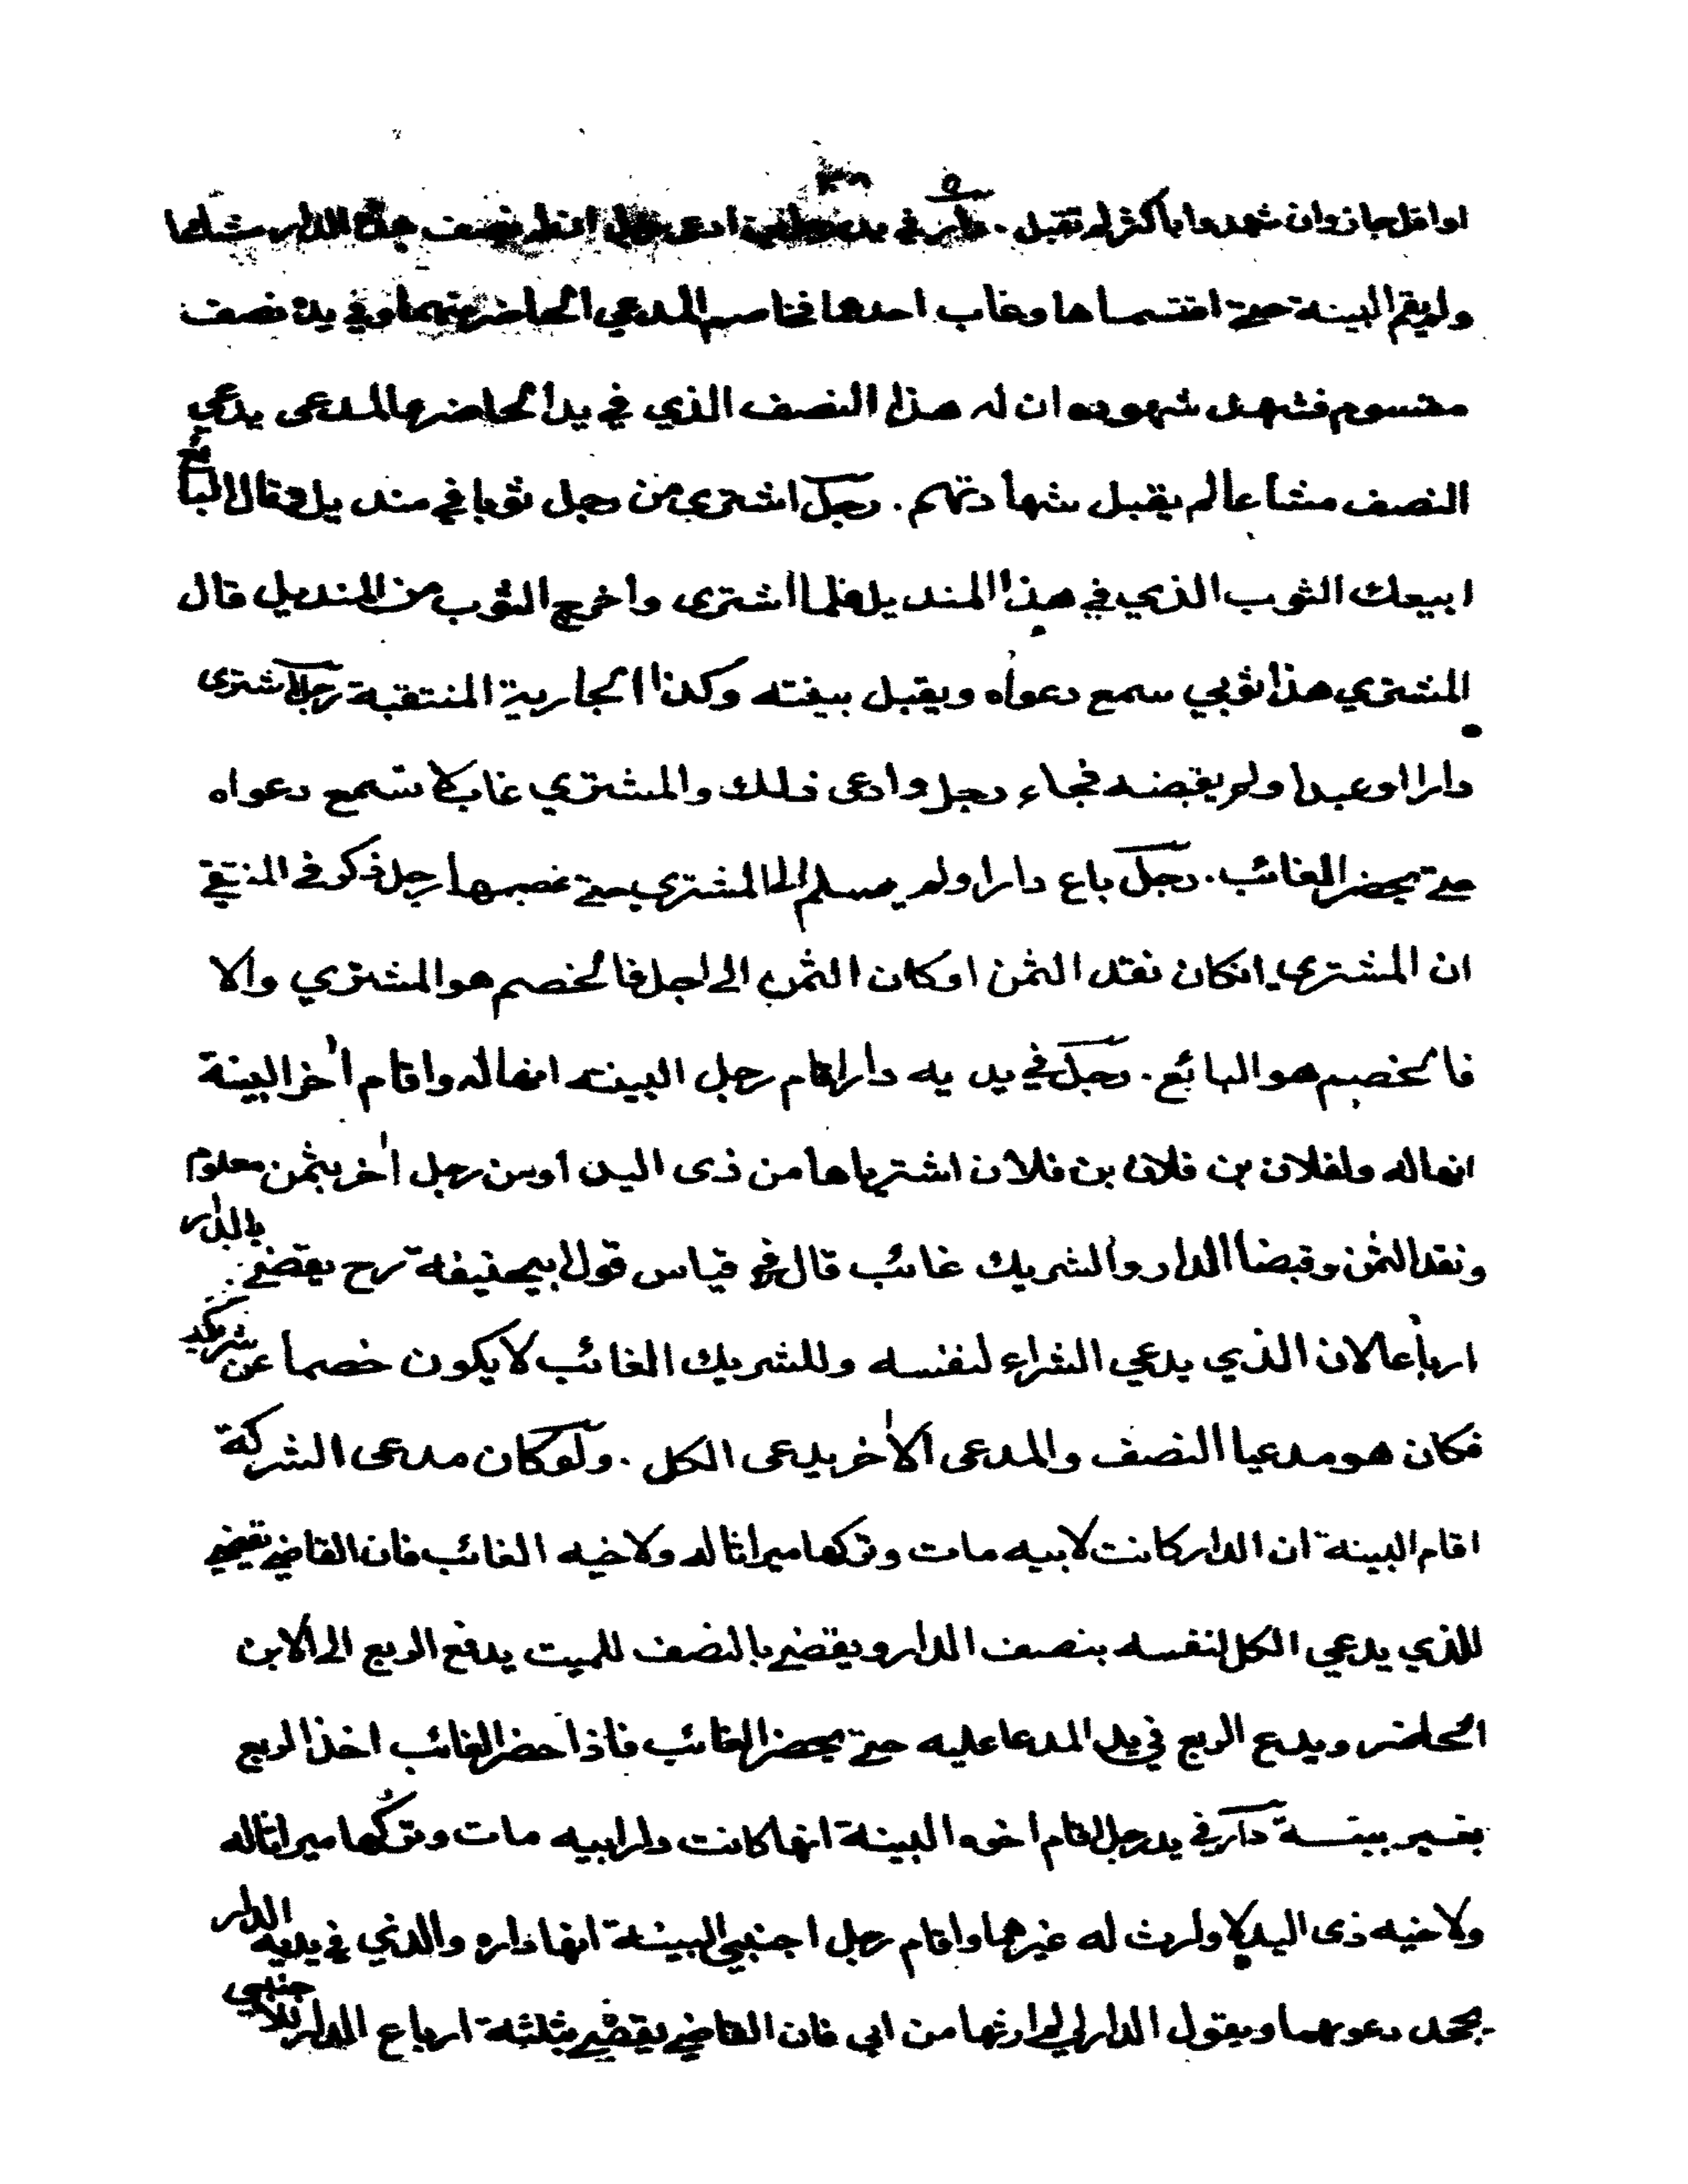 او اقل جاز وان شهدوا باكثر لم تقبل . دار في يد رجلين ادعى رجل ان له نصف هذه الدار مشاعا
ولم يقم البينة حتى اقتسماها وغاب احدهما فخاصم المدعي الحاضر منهما وفي يده نصف
مقسوم فشهد شهوده ان له هذا النصف الذي في يد الحاضر والمدعى يدعي
النصف مشاعا لم يقبل شهادتهم . رجل اشترى من رجل ثوبا في منديل وقال البائع
ابيعك الثوب الذي في هذا المنديل فلما اشترى واخرج الثوب من المنديل قال
المشتري هذا ثوبي سمع دعواه ويقبل بينته وكذا الجارية المنتقبة رجل اشترى
دارا او عبدا ولم يقبضه فجاء رجل وادعى ذلك والمشتري غائب لا تسمع دعواه
حتى يحضر الغائب . رجل باع دارا ولم يسلم الى المشتري حتى غصبها رجل ذكر في المنتقى
ان المشتري انكان نقد الثمن او كان الثمن الى اجل فالخصم هو المشتري والا
فالخصم هو البائع . رجل في يديه دار اقام رجل البينة انها له واقام آخر البينة
انها له ولفلان بن فلان بن فلان اشترياها من ذى اليد او من رجل آخر بثمن معلوم
ونقد الثمن وقبضا الدار والشريك غائب قال في قياس قول ابيحنيفة رح يقضى بالدار
ارباعا لان الذي يدعي الشراء لنفسه وللشريك الغائب لا يكون خصما عن شريكه
فكان هو مدعيا النصف والمدعى الآخر يدعى الكل . ولو كان مدعى الشركة
اقام البينة ان الدار كانت لابيه مات وتركها ميراثا له ولاخيه الغائب فان القاضي يقضي
للذي يدعي الكل لنفسه بنصف الدار ويقضي بالنصف للميت يدفع الربع الى الابن
الحاضر ويدع الربع في يد المدعا عليه حتى يحضر الغائب فاذا حضر الغائب اخذ الربع
بغير بينة دار في يد رجل اقام اخوه البينة انها كانت دار ابيه مات وتركها ميراثا له
ولاخيه ذى اليد لا وارث له غيرهما واقام رجل اجنبي البينة انها داره والذي في يديه الدار
يجحد دعويهما ويقول الدار لي لم ارثها من ابي فان القاضي يقضي بثلثة ارباع الدار للاجنبي